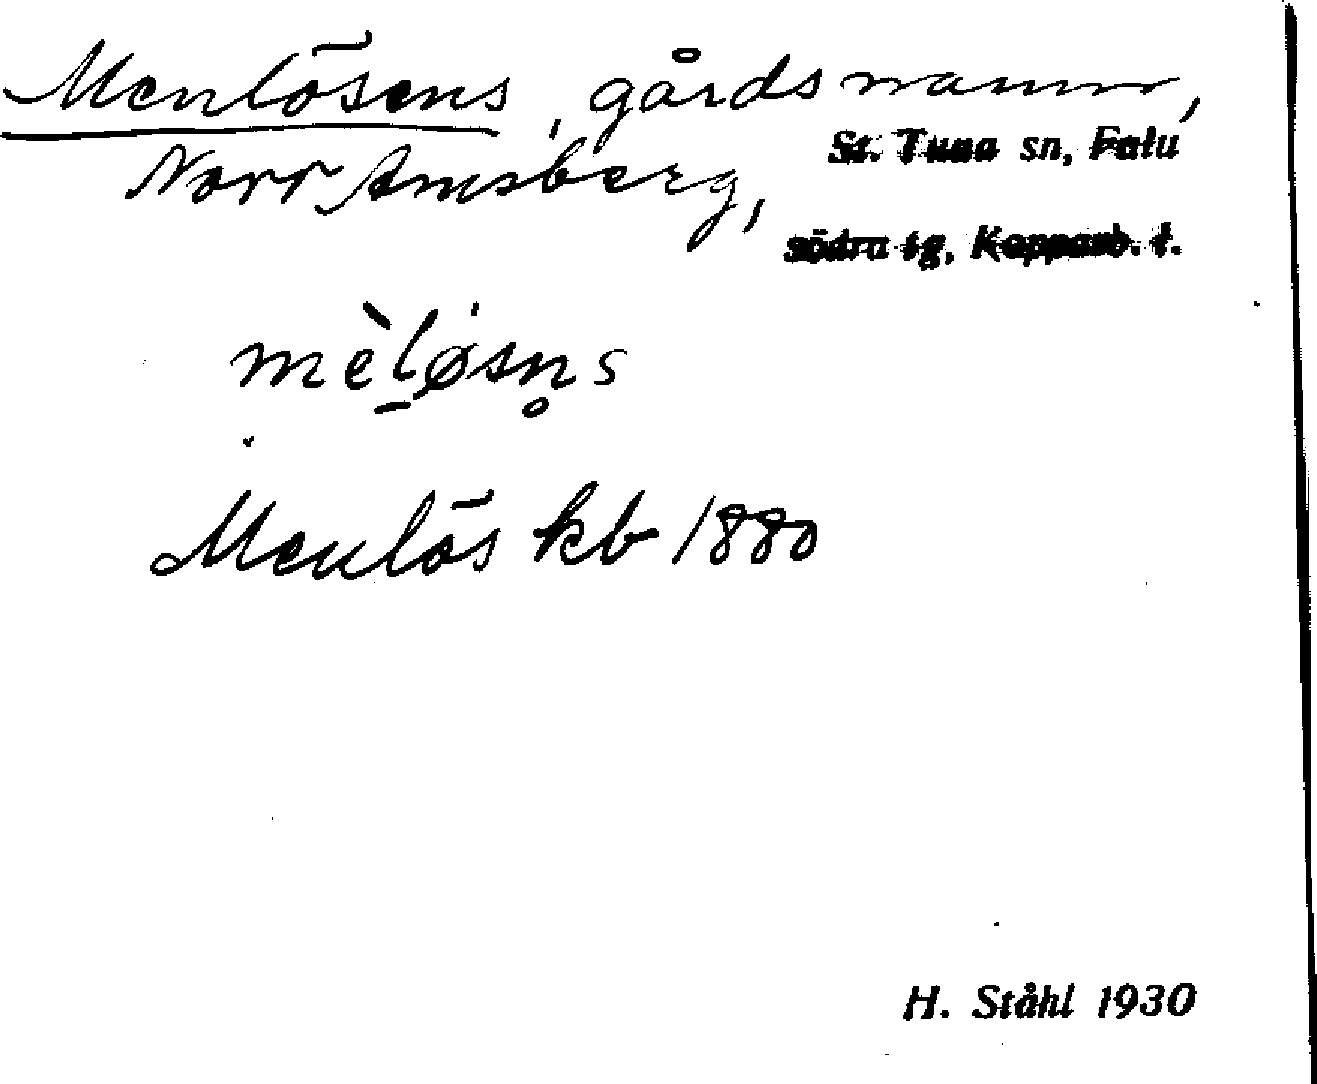 Menlösens, gårdsnamn,
St. Tuna sn, Falu
Norr Amsberg,
södra tg, Kopparb. l.
mèløsn̥s
Menlös kb 1880
H. Ståhl 1930